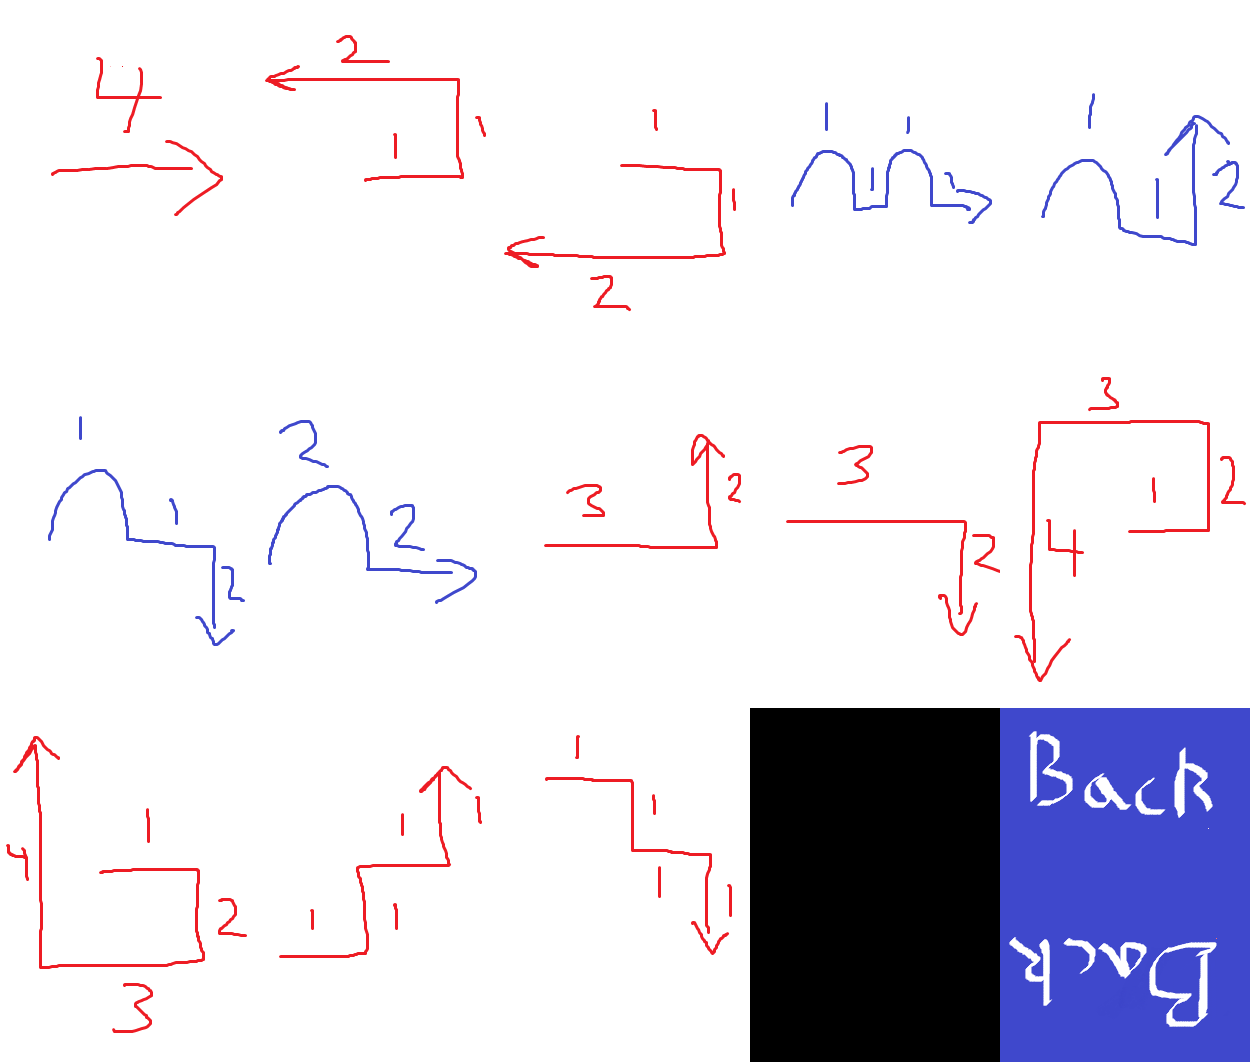 4
2
1 1
1
1
2
1 1
1 1
1
1 2
1
1
2
2
2
3 2
3
2
3
1 2
4
1
4 2
3
1 1
1 1
1
1
1 1
Back
Back